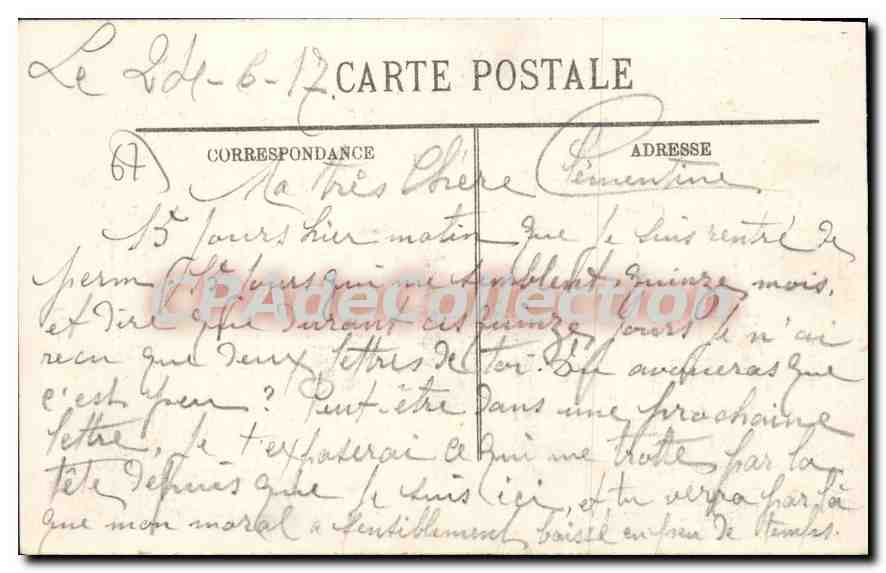 Le 24-6-17. CARTE POSTALE
67 CORRESPONDANCE ADRESSE
Ma très Chère Clémentine
15 jours hier matin que je suis rentré de
perm, 15 jours qui me semblent quinze mois,
et dire que durant ces quinze jours je n'ai
recu que deux lettres de toi. Tu avoueras que
c'est peu? Peut-être dans une prochaine
lettre, je t'exposerai ce qui me trotte par la
tête depuis que je suis ici, et tu verra par là
que mon moral a sensiblement baissé en peu de temps.
CPAdeCollection